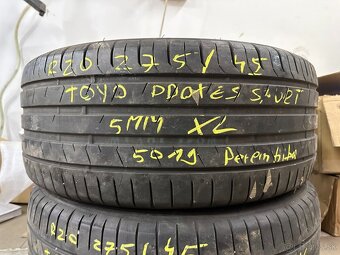 R20 275/45
TOYO PROXES SPORT
5MM XL
5019
R20 275/45